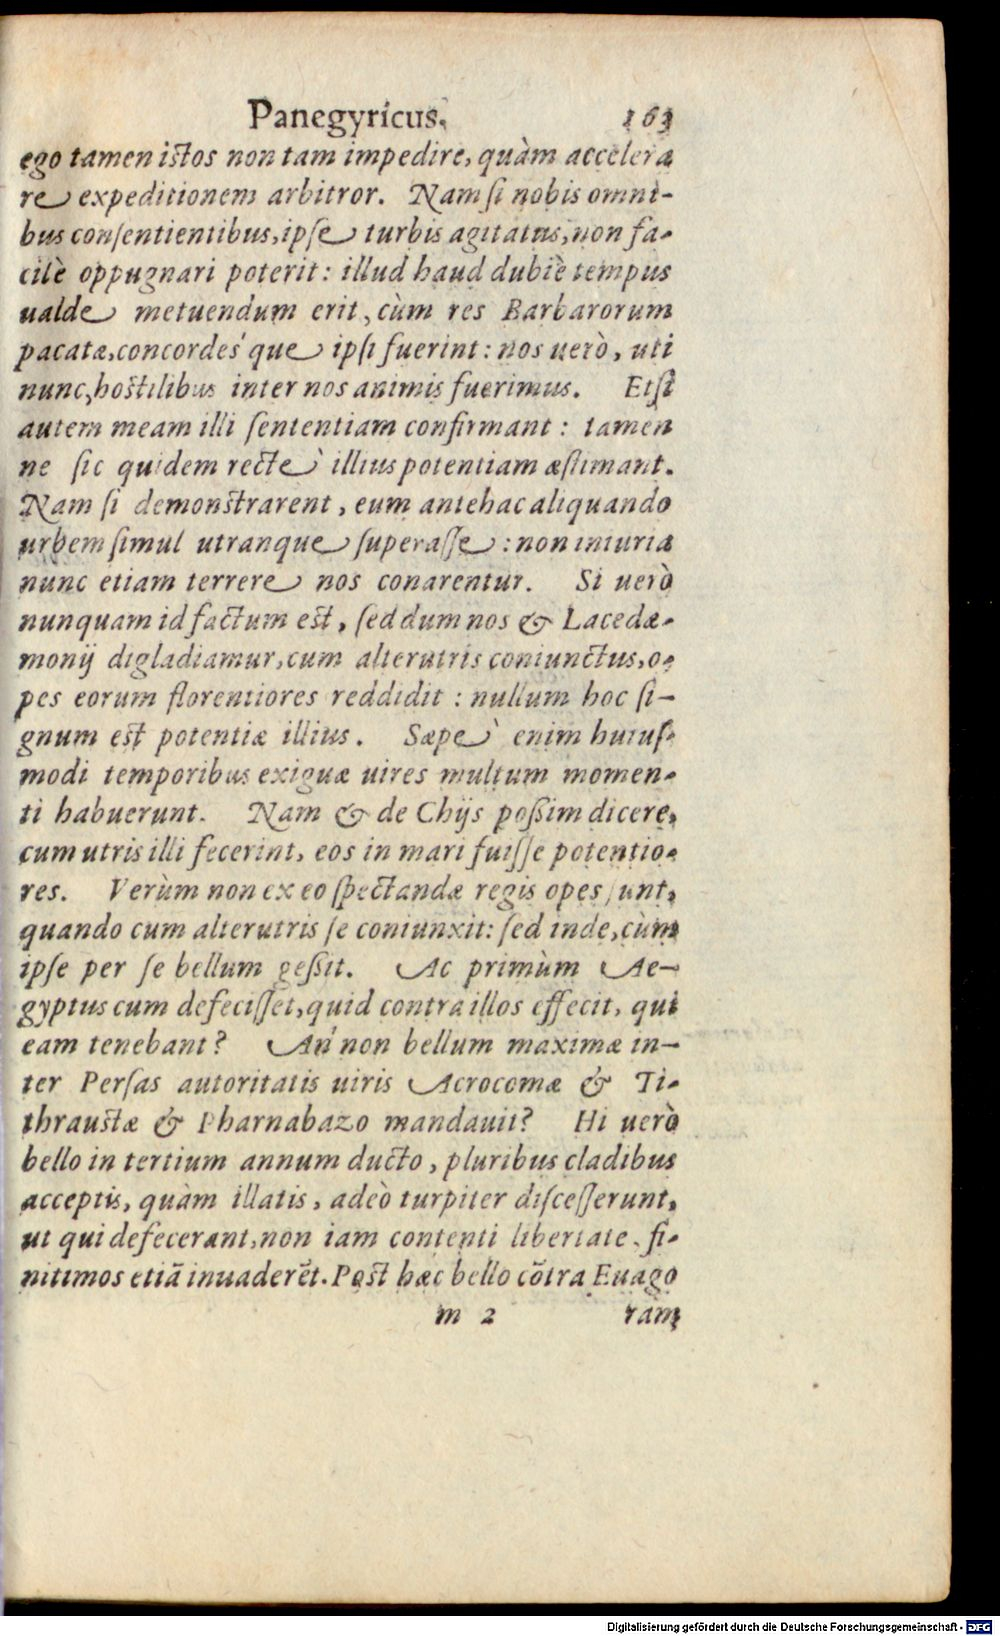 Panegyricus. 163
ego tamen istos non tam impedire, quàm accelera
re expeditionem arbitror. Nam si nobis omni-
bus consentientibus, ipse turbis agitatus, non fa-
cilè oppugnari poterit: illud haud dubiè tempus
ualde metuendum erit, cùm res Barbarorum
pacatæ, concordes´que ipsi fuerint: nos uerò, uti
nunc, hostilibus inter nos animis fuerimus. Etsi
autem meam illi sententiam confirmant: tamen
ne sic quidem rectè illius potentiam æstimant.
Nam si demonstrarent, eum antehac aliquando
urbem simul utranque superasse: non iniuria
nunc etiam terrere nos conarentur. Si uerò
nunquam id factum est, sed dum nos & Lacedæ-
monij digladiamur, cum alterutris coniunctus, o-
pes eorum florentiores reddidit: nullum hoc si-
gnum est potentiæ illius. Sæpè enim huius-
modi temporibus exiguæ uires multum momen-
ti habuerunt. Nam & de Chijs possim dicere,
cum utris illi fecerint, eos in mari fuisse potentio-
res. Verùm non ex eo spectandæ regis opes sunt,
quando cum alterutris se coniunxit: sed inde, cùm
ipse per se bellum gessit. Ac primùm Ae-
gyptus cum defecisset, quid contra illos effecit, qui
eam tenebant? An´non bellum maximæ in-
ter Persas autoritatis uiris Acrocomæ & Ti-
thraustæ & Pharnabazo mandauit? Hi uerò
bello in tertium annum ducto, pluribus cladibus
acceptis, quàm illatis, adeò turpiter discesserunt,
ut qui defecerant, non iam contenti libertate, fi-
nitimos etiã inuaderẽt. Post hæc bello cõtra Euago
m 2 ram
Digitalisierung gefördert durch die Deutsche Forschungsgemeinschaft - DFG